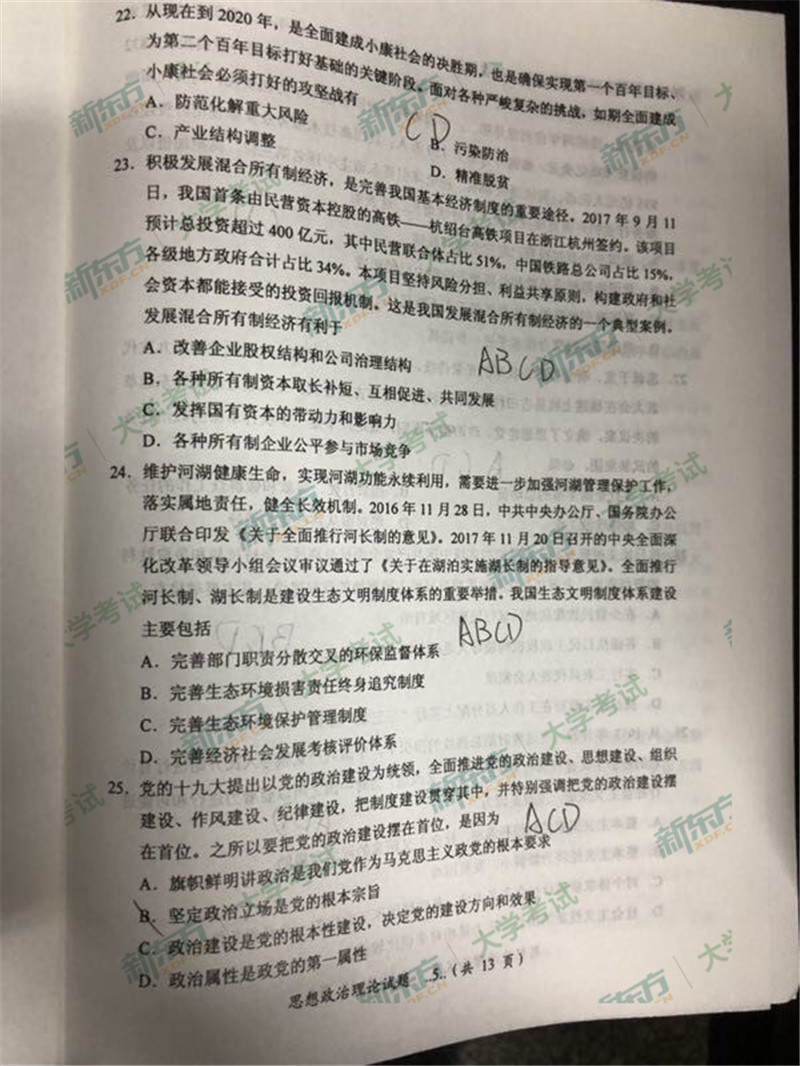 22. 从现在到 2020 年，是全面建成小康社会的决胜期，也是确保实现第一个百年目标、
为第二个百年目标打好基础的关键阶段。面对各种严峻复杂的挑战，如期全面建成
小康社会必须打好的攻坚战有
CD
A. 防范化解重大风险
B. 污染防治
C. 产业结构调整
D. 精准脱贫
23. 积极发展混合所有制经济，是完善我国基本经济制度的重要途径。2017 年 9 月 11
日，我国首条由民营资本控股的高铁——杭绍台高铁项目在浙江杭州签约。该项目
预计总投资超过 400 亿元，其中民营联合体占比 51%，中国铁路总公司占比 15%，
各级地方政府合计占比 34%。本项目坚持风险分担、利益共享原则，构建政府和社
会资本都能接受的投资回报机制。这是我国发展混合所有制经济的一个典型案例。
发展混合所有制经济有利于
ABCD
A. 改善企业股权结构和公司治理结构
B. 各种所有制资本取长补短、互相促进、共同发展
C. 发挥国有资本的带动力和影响力
D. 各种所有制企业公平参与市场竞争
24. 维护河湖健康生命，实现河湖功能永续利用，需要进一步加强河湖管理保护工作，
落实属地责任，健全长效机制。2016 年 11 月 28 日，中共中央办公厅、国务院办公
厅联合印发《关于全面推行河长制的意见》。2017 年 11 月 20 日召开的中央全面深
化改革领导小组会议审议通过了《关于在湖泊实施湖长制的指导意见》。全面推行
河长制、湖长制是建设生态文明制度体系的重要举措。我国生态文明制度体系建设
主要包括
ABCD
A. 完善部门职责分散交叉的环保监督体系
B. 完善生态环境损害责任终身追究制度
C. 完善生态环境保护管理制度
D. 完善经济社会发展考核评价体系
25. 党的十九大提出以党的政治建设为统领，全面推进党的政治建设、思想建设、组织
建设、作风建设、纪律建设，把制度建设贯穿其中，并特别强调把党的政治建设摆
在首位。之所以要把党的政治建设摆在首位，是因为
ACD
A. 旗帜鲜明讲政治是我们党作为马克思主义政党的根本要求
B. 坚定政治立场是党的根本宗旨
C. 政治建设是党的根本性建设，决定党的建设方向和效果
D. 政治属性是政党的第一属性
思想政治理论试题 .5.（共 13 页）
新东方 XDF.CN
大学考试